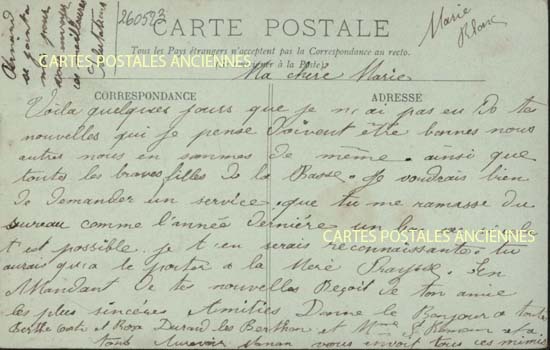 Armand
se joint a
moi pour
vous envoyer
ces meilleures
salutations
260523
Marie
Blanc
CARTE POSTALE
Tous les Pays étrangers n'acceptent pas la Correspondance au recto.
à la Poste
CARTES POSTALES ANCIENNES
Ma chère Marie
CORRESPONDANCE
ADRESSE
Voila quelques jours que je n'ai pas eu de tes
nouvelles qui je pense doivent être bonnes nous
autres nous en sommes de même. ainsi que
toute les braves filles de la Basse. Je voudrais bien
te demander un service. que tu me ramasse du
sureau comme l'année dernière
t est possible je t'en serais reconnaissante. tu
CARTES POSTALES ANCIENNES
aurai qu'a le porter a la Mere En
Attendant de tes nouvelles Reçoit de ton amie
les plus sincères Amitiés Donne le Bonjour de toute
Berthe et Rosa Durand les Berthon et Mme
tous Aurevoir vous envoit tous ces